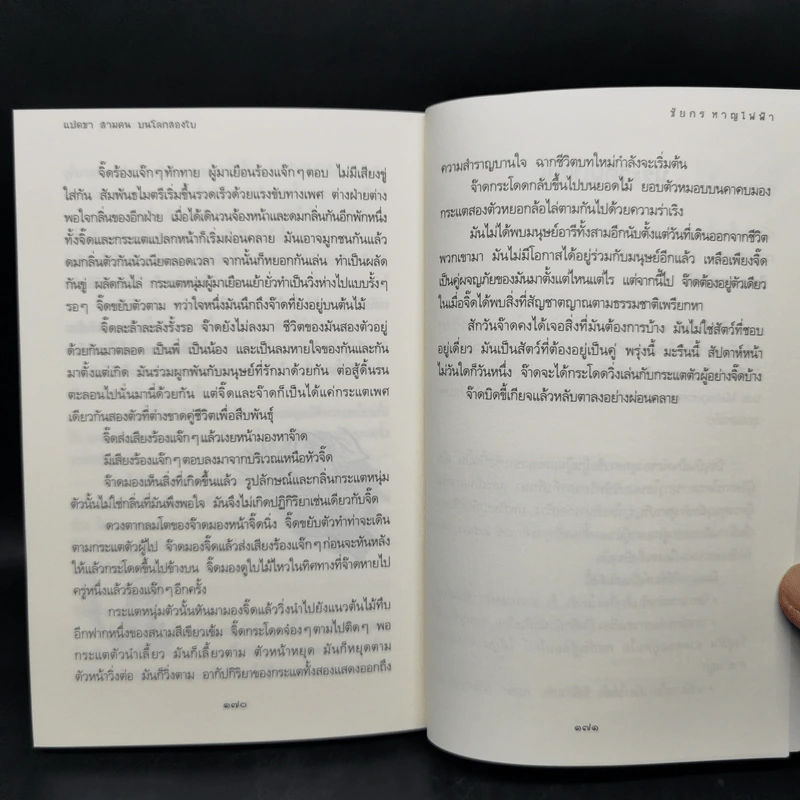 แปดขา สามคน บนโลกสองใบ
จี๊ดร้องแจ๊กๆ ทักทาย ผู้มาเยือนร้องแจ๊กๆ ตอบ ไม่มีเสียงขู่
ใส่กัน สัมพันธไมตรีเริ่มขึ้นรวดเร็วด้วยแรงขับทางเพศ ต่างฝ่ายต่าง
พอใจกลิ่นของอีกฝ่าย เมื่อได้เดินวนจ้องหน้าและดมกลิ่นกันอีกพักหนึ่ง
ทั้งจี๊ดและกระแตแปลกหน้าก็เริ่มผ่อนคลาย มันเอาจมูกชนกันแล้ว
ดมกลิ่นตัวกันนัวเนียตลอดเวลา จากนั้นก็หยอกกันเล่น ทำเป็นผลัด
กันขู่ ผลัดกันไล่ กระแตหนุ่มผู้มาเยือนเย้ายั่วทำเป็นวิ่งห่างไปแบบรั้งๆ
รอๆ จี๊ดขยับตัวตาม ทว่าใจหนึ่งมันนึกถึงจ๊าดที่ยังอยู่บนต้นไม้
จี๊ดละล้าละลังรั้งรอ จ๊าดยังไม่ลงมา ชีวิตของมันสองตัวอยู่
ด้วยกันมาตลอด เป็นพี่ เป็นน้อง และเป็นลมหายใจของกันและกัน
มาตั้งแต่เกิด มันร่วมผูกพันกับมนุษย์ที่รักมาด้วยกัน ต่อสู้ดิ้นรน
ตะลอนไปนั่นมานี่ด้วยกัน แต่จี๊ดและจ๊าดก็เป็นได้แค่กระแตเพศ
เดียวกันสองตัวที่ต่างขาดคู่ชีวิตเพื่อสืบพันธุ์
จี๊ดส่งเสียงร้องแจ๊กๆ แล้วเงยหน้ามองหาจ๊าด
มีเสียงร้องแจ๊กๆ ตอบลงมาจากบริเวณเหนือหัวจี๊ด
จ๊าดมองเห็นสิ่งที่เกิดขึ้นแล้ว รูปลักษณ์และกลิ่นกระแตหนุ่ม
ตัวนั้นไม่ใช่กลิ่นที่มันพึงพอใจ มันจึงไม่เกิดปฏิกิริยาเช่นเดียวกับจี๊ด
ดวงตากลมโตของจ๊าดมองหน้าจี๊ดนิ่ง จี๊ดขยับตัวทำท่าจะเดิน
ตามกระแตตัวผู้ไป จ๊าดมองจี๊ดแล้วส่งเสียงร้องแจ๊กๆ ก่อนจะหันหลัง
ให้แล้วกระโดดขึ้นไปข้างบน จี๊ดมองดูใบไม้ไหวในทิศทางที่จ๊าดหายไป
ครู่หนึ่งแล้วร้องแจ๊กๆ อีกครั้ง
กระแตหนุ่มตัวนั้นหันมามองจี๊ดแล้ววิ่งนำไปยังแนวต้นไม้ทึบ
อีกฟากหนึ่งของสนามสีเขียวเข้ม จี๊ดกระโดดจ๋องๆ ตามไปติดๆ พอ
กระแตตัวนำเลี้ยว มันก็เลี้ยวตาม ตัวหน้าหยุด มันก็หยุดตาม
ตัวหน้าวิ่งต่อ มันก็วิ่งตาม อากัปกิริยาของกระแตทั้งสองแสดงออกถึง
๑๗๐
ชัยกร หาญไฟฟ้า
ความสำราญบานใจ ฉากชีวิตบทใหม่กำลังจะเริ่มต้น
จ๊าดกระโดดกลับขึ้นไปบนยอดไม้ ยอบตัวหมอบบนคาคบมอง
กระแตสองตัวหยอกล้อไล่ตามกันไปด้วยความร่าเริง
มันไม่ได้พบมนุษย์อารีทั้งสามอีกนับตั้งแต่วันที่เดินออกจากชีวิต
พวกเขามา มันไม่มีโอกาสได้อยู่ร่วมกับมนุษย์อีกแล้ว เหลือเพียงจี๊ด
เป็นคู่ผจญภัยของมันมาตั้งแต่ไหนแต่ไร แต่จากนี้ไป จ๊าดต้องอยู่ตัวเดียว
ในเมื่อจี๊ดได้พบสิ่งที่สัญชาตญาณตามธรรมชาติเพรียกหา
สักวันจ๊าดคงได้เจอสิ่งที่มันต้องการบ้าง มันไม่ใช่สัตว์ที่ชอบ
อยู่เดี่ยว มันเป็นสัตว์ที่ต้องอยู่เป็นคู่ พรุ่งนี้ มะรืนนี้ สัปดาห์หน้า
ไม่วันใดก็วันหนึ่ง จ๊าดจะได้กระโดดวิ่งเล่นกับกระแตตัวผู้อย่างจี๊ดบ้าง
จ๊าดบิดขี้เกียจแล้วหลับตาลงอย่างผ่อนคลาย
๑๗๑